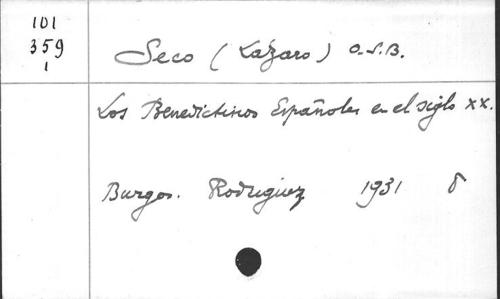 101
359
1
Seco (Lázaro) O.S.B.
Los Benedictinos Españoles en el siglo XX.
Burgos. Rodriguez 1931 8